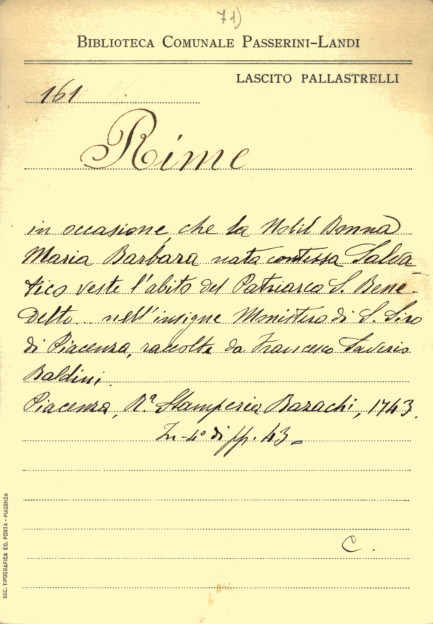 71)
BIBLIOTECA COMUNALE PASSERINI-LANDI
LASCITO PALLASTRELLI
161
Rime
in occasione, che la Nobil Donna
Maria Barbara nata contessa Salva
tico veste l'abito del Patriarca S. Bene-
detto nell'insigne Monistero di S. Siro
di Piacenza, raccolte da Francesco Saverio
Baldini.
Piacenza, Rª Stamperia Bazachi, 1743.
In-4º di pp. 43.
C.
SOC. TIPOGRAFICA ED. PORTA - PIACENZA